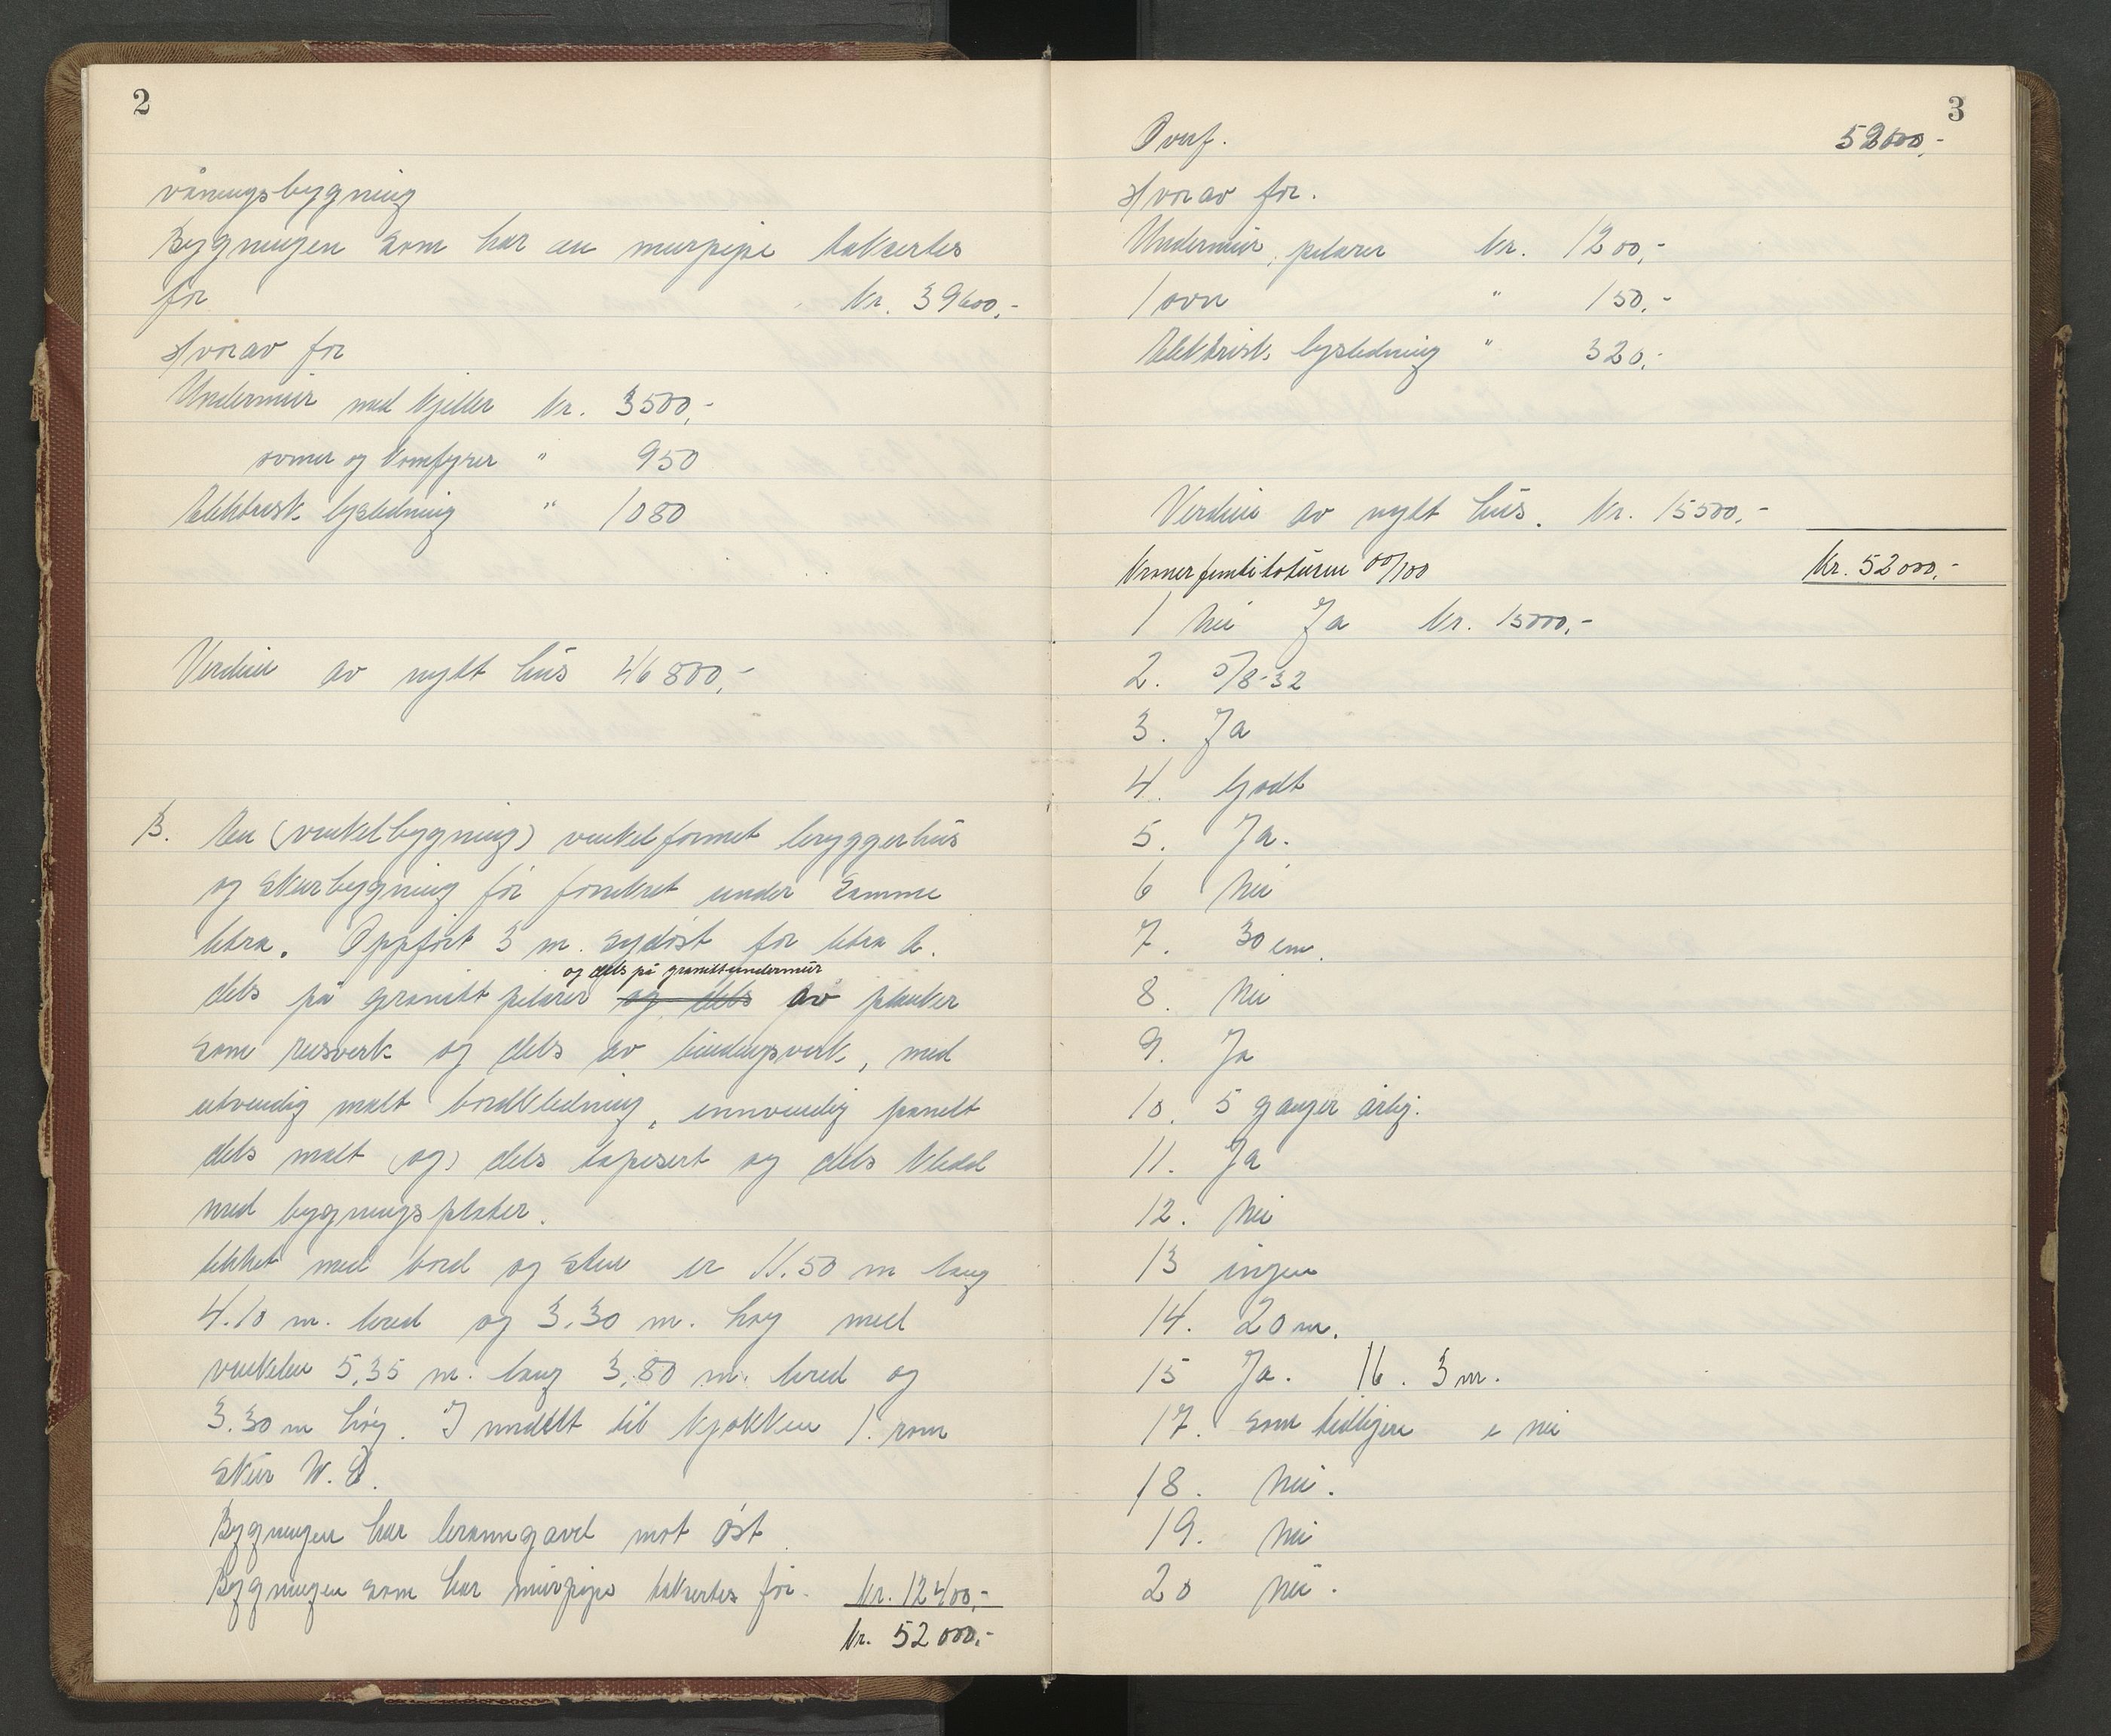 2
våningsbygning
Bygningen som har en murpipe takseres
for kr. 39600,-
Hvorav for
Undermur med kjeller kr. 3500,-
ovner og komfyrer " 950
Elektrisk lysledning " 1080
Verdien av nytt hus 46800,-
B. En (vinkelbygning) vinkelformet bryggerhus
og skurbygning før forsikret under samme
litra. Oppført 3 m. sydøst for litra A.
og dels på granittundermur
dels på granitt pilarer og dels av planker
som reisverk og dels av bindingsverk, med
utvendig malt bordkledning, innvendig panelt
dels malt (og) dels tapesert og dels kledd
med bygningsplater.
tekket med bord og sten er 11.50 m lang
4.10 m. bred og 3.30 m. høy med
vinkelen 5,35 m. lang 3,80 m. bred og
3.30 m høy. Inndelt til kjøkken 1. rom
skur W. C.
Bygningen har branngavl mot øst.
Bygningen som har murpipe takseres for. kr. 12400,-
kr. 52000,-
3
Overf. 52000,-
Hvorav for.
Undermur, pilarer kr. 1200,-
1 ovn " 150,-
Elektrisk lysledning " 320,-
Verdien av nytt hus. kr. 15500,-
Kroner femtitotusen 00/100 kr. 52000,-
1 Nei Ja kr. 15000,-
2. 5/8-32
3. Ja
4. Godt
5. Ja.
6 Nei
7. 30 cm.
8. Nei
9. Ja
10. 5 ganger årlig.
11. Ja
12. Nei
13 ingen
14. 20 m.
15 Ja. 16. 3 m.
17. som tidligere nei
18. Nei.
19. Nei
20 Nei.